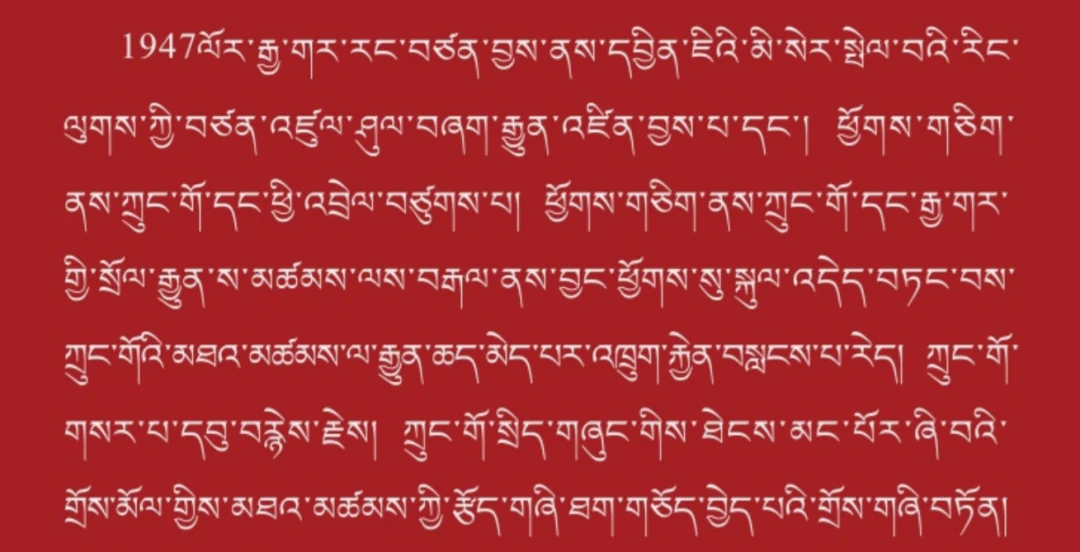 1947ལོར་རྒྱ་གར་རང་བཙན་བྱས་ནས་དབྱིན་ཇིའི་མི་སེར་སྤེལ་བའི་རིང་
ལུགས་ཀྱི་བཙན་འཛུལ་ཤུལ་བཞག་རྒྱུན་འཛིན་བྱས་པ་དང་། ཕྱོགས་གཅིག་
ནས་ཀྲུང་གོ་དང་ཕྱི་འབྲེལ་བཙུགས་པ། ཕྱོགས་གཅིག་ནས་ཀྲུང་གོ་དང་རྒྱ་གར་
གྱི་སྲོལ་རྒྱུན་ས་མཚམས་ལས་བརྒལ་ནས་བྱང་ཕྱོགས་སུ་སྐུལ་འདེད་བཏང་བས་
ཀྲུང་གོའི་མཐའ་མཚམས་ལ་རྒྱུན་ཆད་མེད་པར་འཁྲུག་རྐྱེན་བསླངས་པ་རེད། ཀྲུང་གོ་
གསར་པ་དབུ་བརྙེས་རྗེས། ཀྲུང་གོ་སྲིད་གཞུང་གིས་ཐེངས་མང་པོར་ཞི་བའི་
གྲོས་མོལ་གྱིས་མཐའ་མཚམས་ཀྱི་རྩོད་གཞི་ཐག་གཅོད་བྱེད་པའི་གྲོས་གཞི་བཏོན།